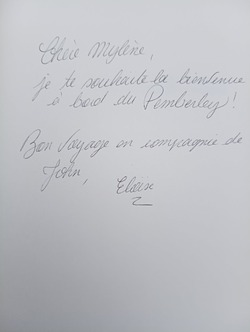 Chère Mylène,
je te souhaite la bienvenue
à bord du Pemberley !
Bon Voyage en compagnie de
John,
Eloïse